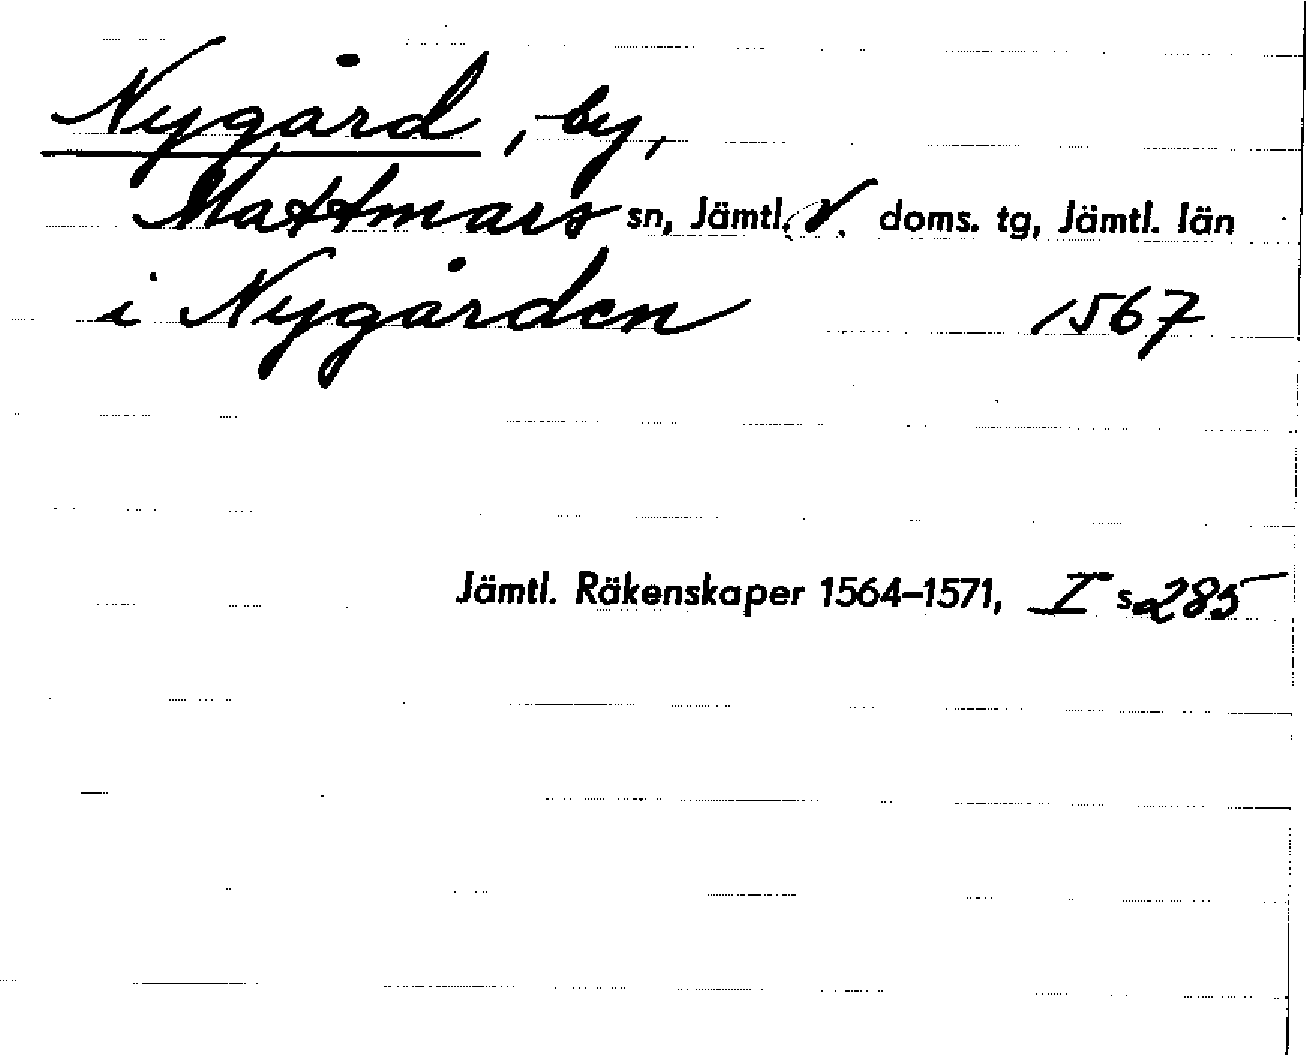 Nygård, by,
Mattmars sn, Jämtl. V. doms. tg, Jämtl. län
i Nygården 1567
Jämtl. Räkenskaper 1564–1571, I s. 285